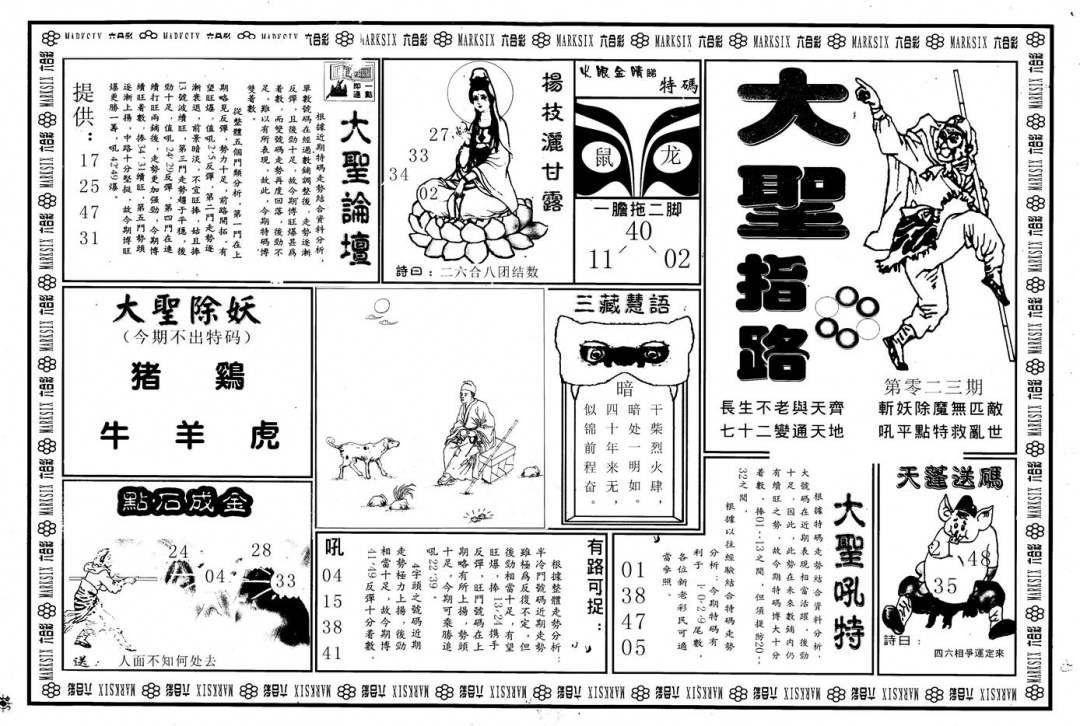 MARKSIX 六合彩
大聖指路
第零二三期
長生不老與天齊
七十二變通天地
斬妖除魔無匹敵
吼平點特救亂世
火眼金睛睇
特碼
鼠
龙
一膽拖二脚
40
11
02
楊枝灑甘露
27
33
34
02
詩曰：二六合八团结数
一點即通
大聖論壇
根據近期特碼走勢結合資料分析，
單數號碼在經過數鋪調整後，走勢逐漸
反彈，且後勁十足，故今期博旺爆甚爲
着數，而變號碼走勢再度回落，後勁不
足，難以有所表現，故此，今期特碼博
雙着數。
從整體五個門類分析，第一門在上
期略見反彈，勢力十足，前路開拓，有
望旺爆，值吼2.5反彈，第二門走勢逐
漸衰退，前景暗淡，不宜旺捧，姑且捧
13號波續旺，第三門走勢趨于平穩，後
勁十足，值吼24.29反彈，第四門在連
續打旺兩鋪後，走勢更加强勁，今期博
續旺着數，捧34.31續旺，第五門勢頭
逐漸上揚，中路十分堅挺，故今期博旺
爆更勝一籌，吼42.49爆。
提供：
17
25
47
31
大聖除妖
（今期不出特码）
猪 鷄
牛 羊 虎
三藏慧語
暗
干柴烈火肆，
暗处一明如。
四十年来无，
似锦前程奋。
點石成金
24
28
04
33
送：人面不知何处去
有路可捉：
根據整體走勢分析：
半冷門號碼近期走勢
雖極爲反復不定，但
後勁相當十足，有望
旺爆，捧13.24携手
反彈，旺門號碼在上
期略有所上揚，勢頭
十足，今期可乘勝追
吼22.39。
4字頭之號碼近期
走勢極力上揚，後勁
相當十足，故今期博
41.49反彈十分着數。
吼
04
15
38
41
大聖吼特
根據特碼走勢結合資料分析，
大號碼在近期表現相當活躍，後勁
十足，因此，此勢在未來數鋪内仍
有續旺之勢，故今期特碼博大十分
着數，捧01--13之間，但須提防20--
32之間。
根據以往經驗結合特碼走勢
分析：今期特碼有
利于1.0.2.9尾數，
各位新老彩民可適
當參照。
01
38
47
05
天蓬送碼
48
35
詩曰：
四六相爭運定來